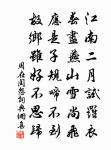 江南二月試羅衣
春盡燕山雪尚飛
應是子規啼不到
故鄉雖好不思歸
周在閨怨詞典網集